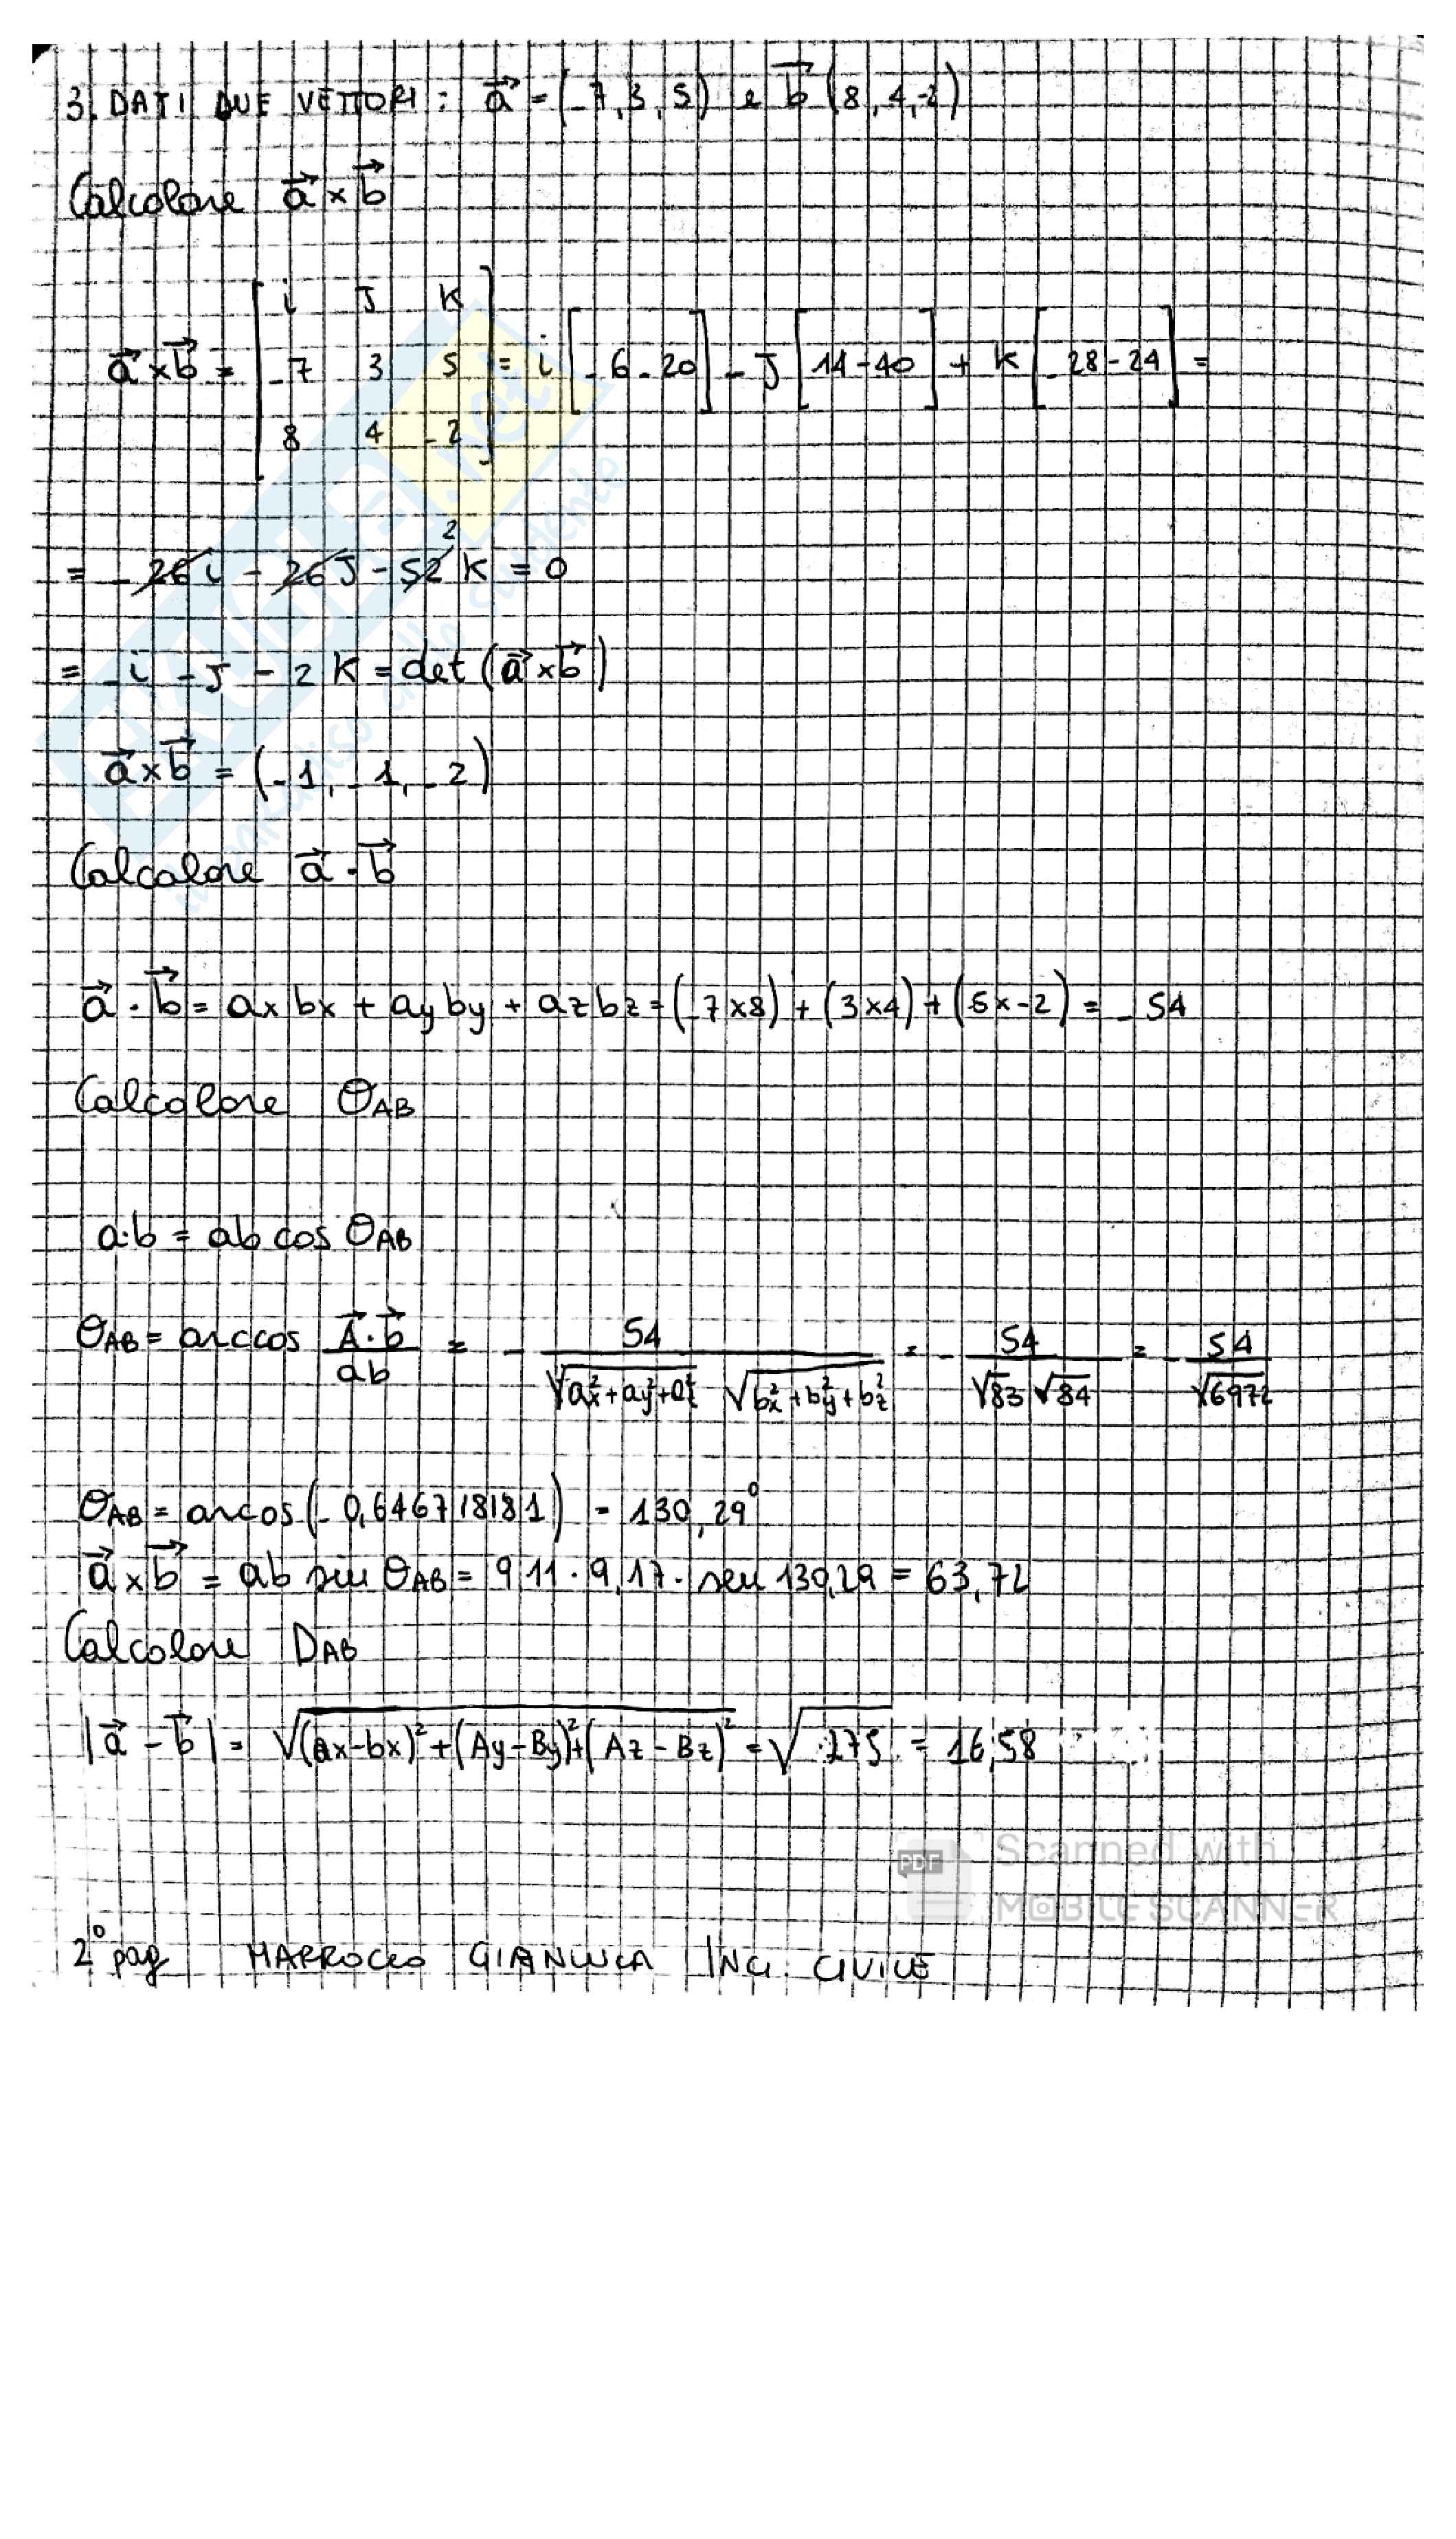 3. DATI DUE VETTORI: a⃗ = (-7, 3, 5) e b⃗ (8, 4, -2)
Calcolare a⃗ × b⃗
i J K
a⃗ × b⃗ = -7 3 5 = i [-6-20] - J [14-40] + K [-28-24] =
8 4 -2
2
= -26i - 26J - 52K = 0
= -i - J - 2K = det (a⃗ × b⃗)
a⃗ × b⃗ = (-1, -1, -2)
Calcolare a⃗ · b⃗
a⃗ · b⃗ = ax bx + ay by + az bz = (-7×8) + (3×4) + (5×-2) = -54
Calcolare ΘAB
a·b = ab cos ΘAB
ΘAB = arccos A⃗·b⃗ / ab = - 54 / √ax²+ay²+az² √bx²+by²+bz² = - 54 / √83 √84 = - 54 / √6972
ΘAB = arcos (-0,646718181) = 130,29°
a⃗ × b⃗ = ab sin ΘAB = 9,11 · 9,17 · sen 130,29 = 63,72
Calcolare DAB
|a⃗ - b⃗| = √(ax-bx)² + (Ay-By)² + (Az-Bz)² = √275 = 16,58
PDF Scanned with
MOBILE SCANNER
2° pag MARROCCO GIANLUCA ING. CIVILE